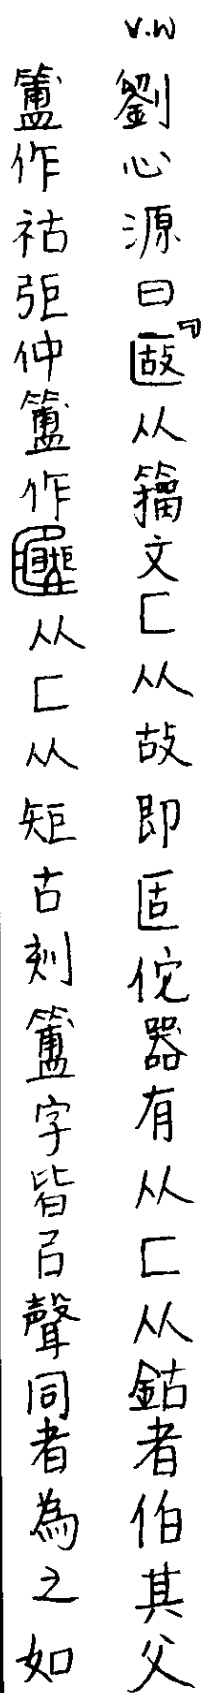 V.W
劉心源曰『𠥗从籒文匚从故即匼佗器有从匚从鈷者伯其父
簠作祜弡仲簠作从匚从矩古刻簠字皆㠯聲同者為之如